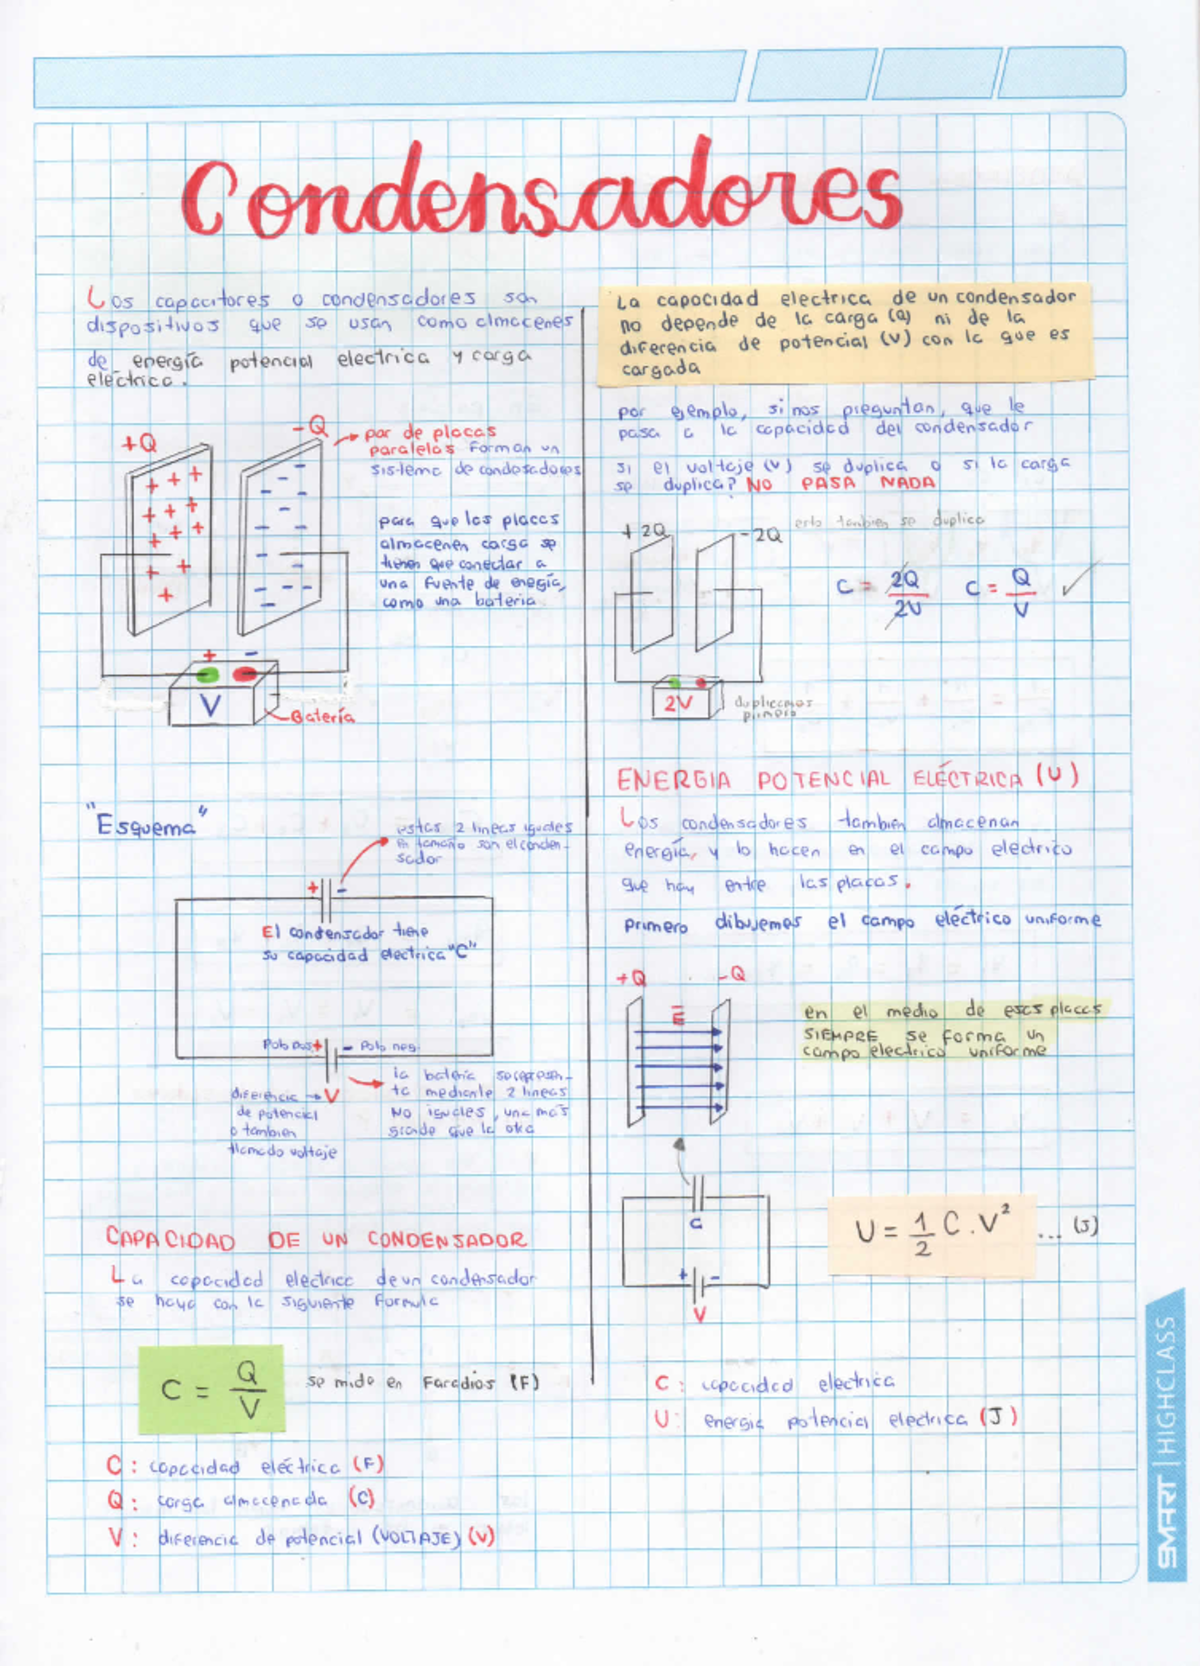 Condensadores
Los capacitores o condensadores son
dispositivos que se usan como almacenes
de energía potencial electrica y carga
eléctrica.
+Q
-Q
par de placas
paralelas forman un
sistema de condesadores
para que las placas
almacenen carga se
tienen que conectar a
una fuente de energía,
como una bateria
+ -
V
Batería
"Esquema"
estas 2 lineas iguales
en tamaño son el conden-
sador
+ -
El condensador tiene
su capacidad electrica "C"
Polo pos + - Polo neg.
diferencia → V
de potencial
o tambien
llamado voltaje
la bateria se represen-
ta mediante 2 lineas
NO iguales, una más
grande que la otra
CAPACIDAD DE UN CONDENSADOR
La capacidad electrica de un condensador
se haya con la siguiente formula
C = Q/V
se mide en Faradios (F)
C : capacidad eléctrica (F)
Q : carga almacenada (C)
V : diferencia de potencial (VOLTAJE) (V)
La capacidad electrica de un condensador
no depende de la carga (Q) ni de la
diferencia de potencial (V) con la que es
cargada
por ejemplo, si nos preguntan, que le
pasa a la capacidad del condensador
si el voltaje (V) se duplica o si la carga
se duplica? NO PASA NADA
esto tambien se duplica
+ 2Q
- 2Q
C = 2Q/2V C = Q/V ✓
2V
duplicamos
primero
ENERGIA POTENCIAL ELÉCTRICA (U)
Los condensadores tambien almacenan
energía, y lo hacen en el campo electrico
que hay entre las placas.
primero dibujemos el campo eléctrico uniforme
+Q
-Q
E
en el medio de esas placas
SIEMPRE se forma un
campo electrico uniforme
C
+ -
V
U = 1/2 C . V² ... (J)
C : capacidad electrica
U : energia potencial electrica (J)
SMART | HIGHCLASS